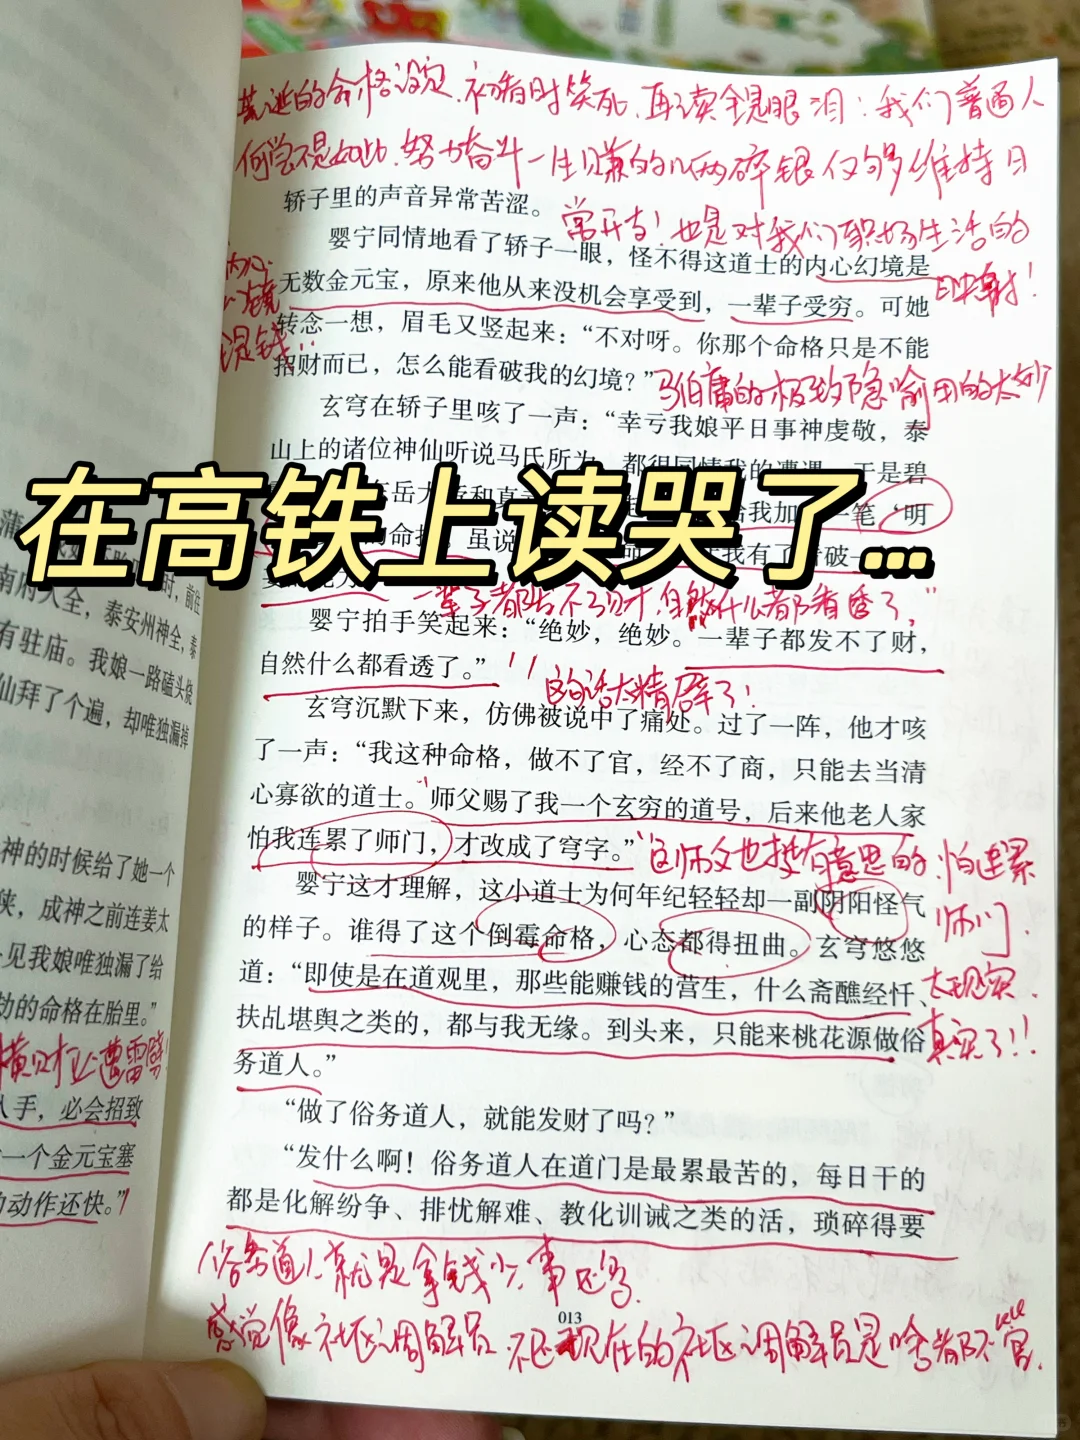 的命格设定.初看时笑死,再读全是眼泪:我们普通人
何尝不是如此.努力奋斗一生赚的几两碎银仅够维持日
常开支!也是对我们职场生活的
映射!
轿子里的声音异常苦涩。
婴宁同情地看了轿子一眼,怪不得这道士的内心幻境是
无数金元宝,原来他从来没机会享受到,一辈子受穷。可她
转念一想,眉毛又竖起来:“不对呀。你那个命格只是不能
招财而已,怎么能看破我的幻境?”
内心
境
是钱
马伯庸的极致隐喻用的太妙
玄穹在轿子里咳了一声:“幸亏我娘平日事神虔敬,泰
山上的诸位神仙听说马氏所为,都很同情我的遭遇,于是碧
给我加了一笔‘明
的命格。虽说
我有了看破
在高铁上读哭了...
一辈子都发不了财,自然什么都看透了。”
婴宁拍手笑起来:“绝妙,绝妙。一辈子都发不了财,
自然什么都看透了。”
这句话太精辟了!
玄穹沉默下来,仿佛被说中了痛处。过了一阵,他才咳
了一声:“我这种命格,做不了官,经不了商,只能去当清
心寡欲的道士。师父赐了我一个玄穷的道号,后来他老人家
怕我连累了师门,才改成了穹字。”
这师父也挺有意思的.怕连累
师门.
婴宁这才理解,这小道士为何年纪轻轻却一副阴阳怪气
的样子。谁得了这个倒霉命格,心态都得扭曲。玄穹悠悠
道:“即使是在道观里,那些能赚钱的营生,什么斋醮经忏、
扶乩堪舆之类的,都与我无缘。到头来,只能来桃花源做俗
务道人。”
太现实.
真实了!!
“做了俗务道人,就能发财了吗?”
“发什么啊!俗务道人在道门是最累最苦的,每日干的
都是化解纷争、排忧解难、教化训诫之类的活,琐碎得要
俗务道人就是拿钱少.事还多.
感觉像社区调解员.不过现在的社区调解员是啥都不管.
013
蒲
时,前往
南府人全,泰安州神全,泰
有驻庙。我娘一路磕头烧
仙拜了个遍,却唯独漏掉
神的时候给了她一个
侠,成神之前连姜太
见我娘唯独漏了给
劫的命格在胎里。”
横财必遭雷劈!
入手,必会招致
一个金元宝塞
动作还快。”